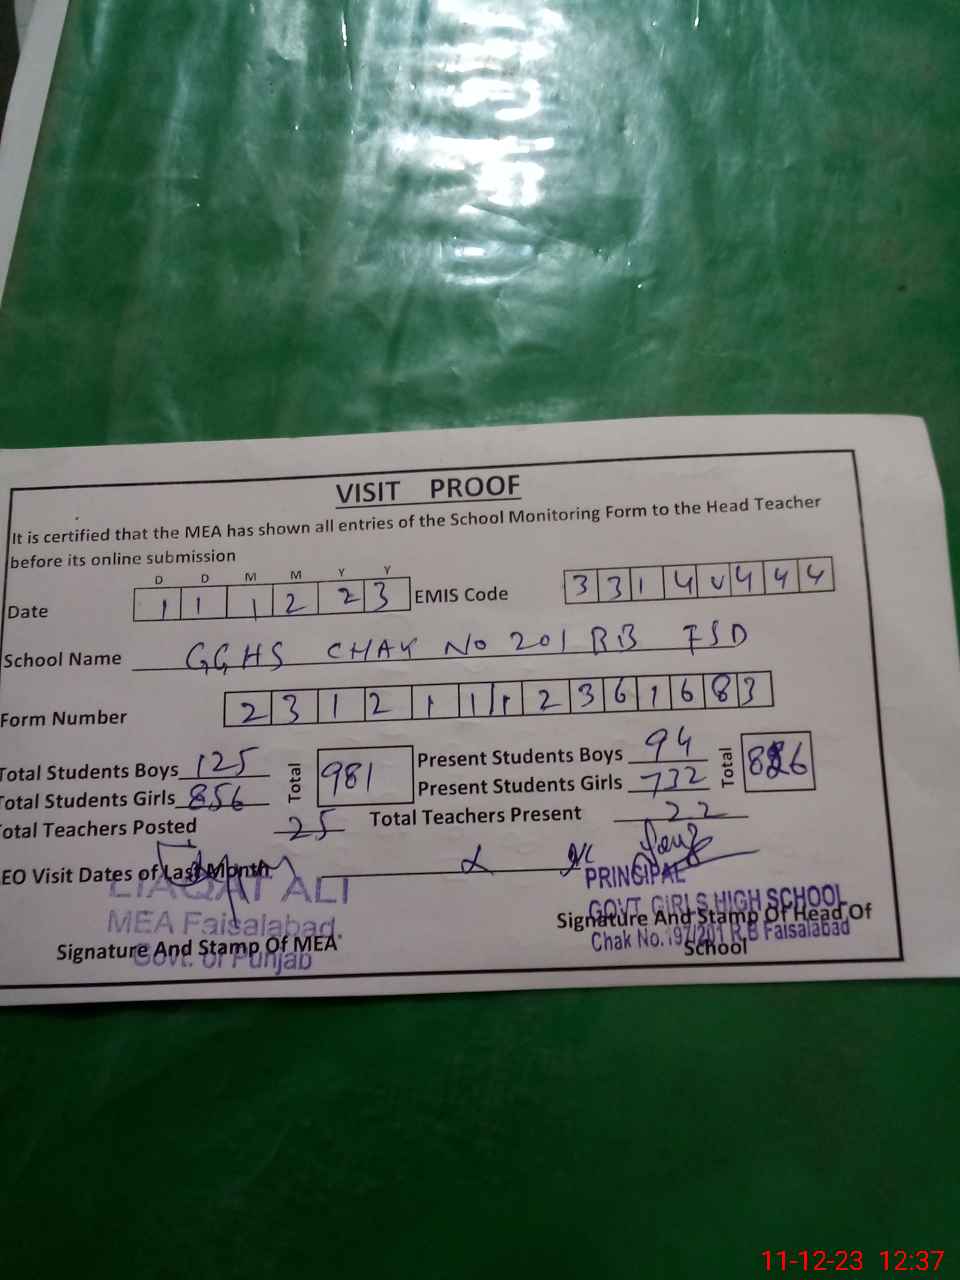 VISIT PROOF
It is certified that the MEA has shown all entries of the School Monitoring Form to the Head Teacher
before its online submission
D D M M Y Y
Date 1 1 1 2 2 3 EMIS Code 3 3 1 4 0 4 4 4
School Name GGHS CHAK No 201 RB FSD
Form Number 2 3 1 2 1 1 1 2 3 6 1 6 8 3
Total Students Boys 125 Total 981 Present Students Boys 94 Total 826
Total Students Girls 856 Present Students Girls 732
Total Teachers Posted 25 Total Teachers Present 22
EO Visit Dates of Last Month
LIAQAT ALI
MEA Faisalabad
Govt. of Punjab
Signature And Stamp Of MEA
PRINCIPAL
GOVT GIRLS HIGH SCHOOL
Chak No.197/201 R.B Faisalabad
Signature And Stamp Of Head Of
School
11-12-23 12:37